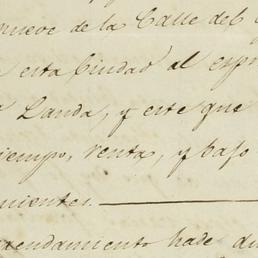 nueve de la Calle del
esta Ciudad al
Landa, y este que
tiempo, venta, y bajo
nientes.
rendamiento hade du